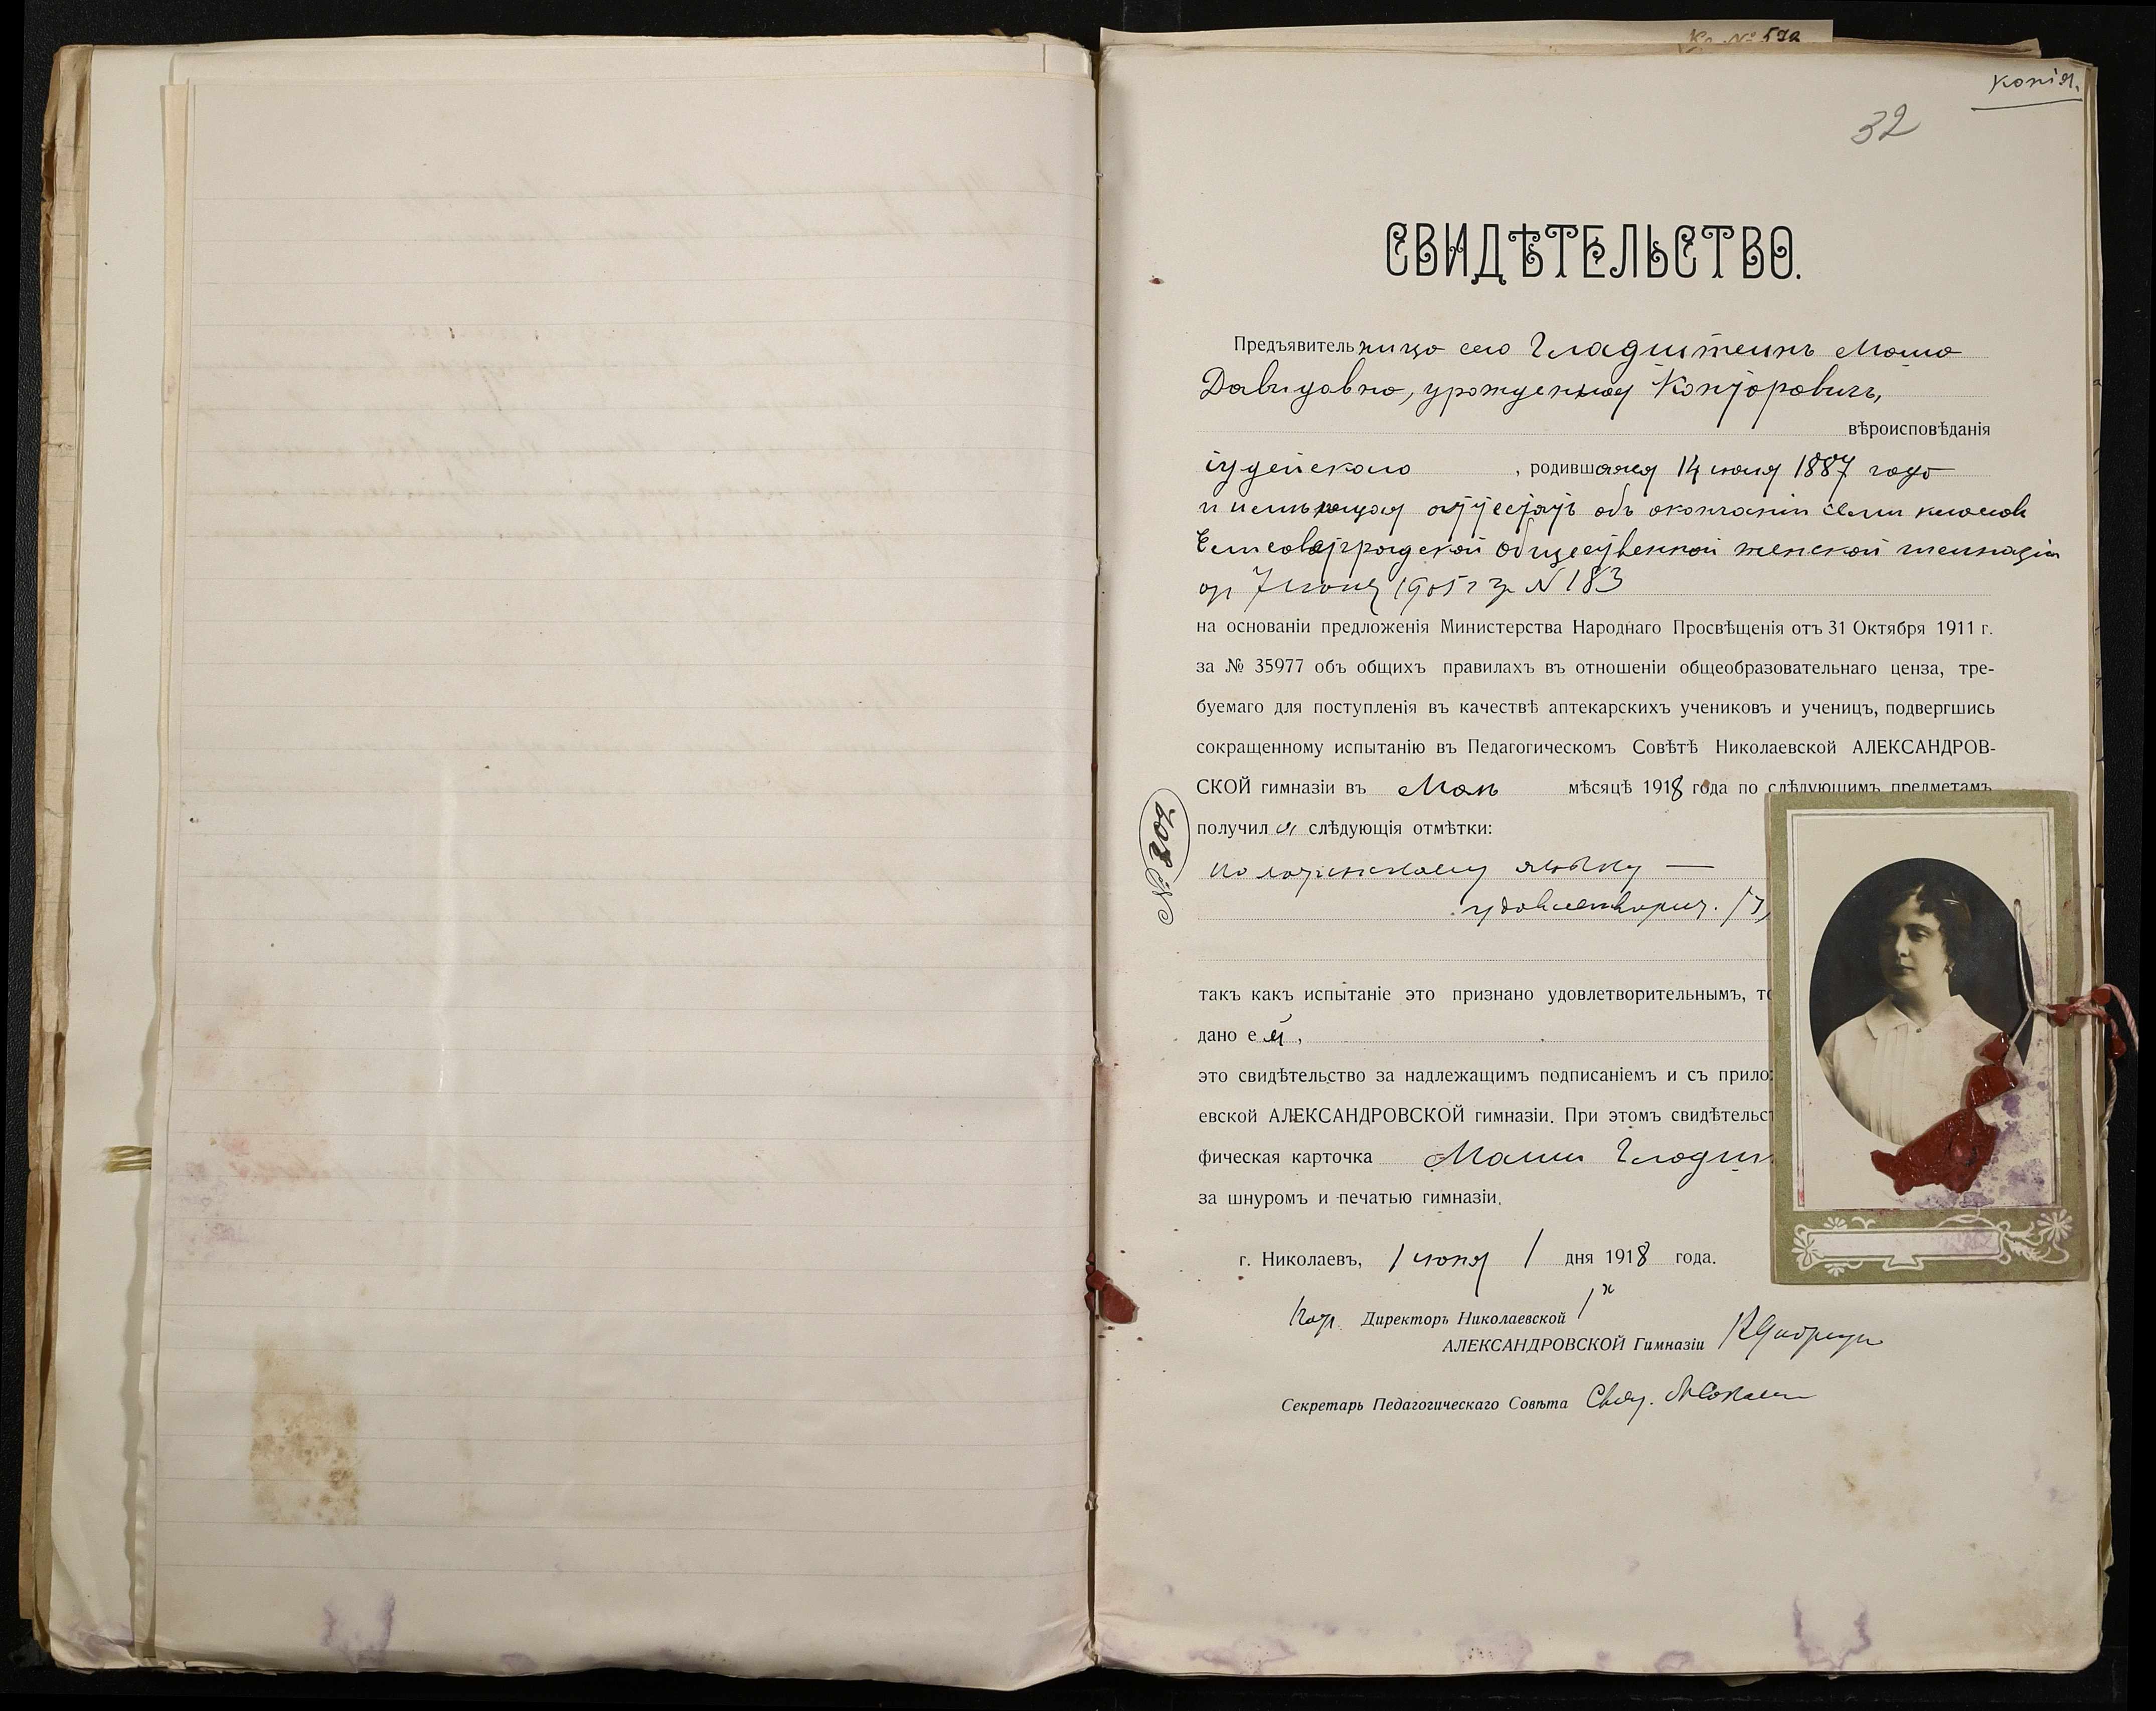 № 572
Копія.
32
СВИДѢТЕЛЬСТВО.
Предъявительница сего Гладштейнъ Маша
Давидовна, урожденная Канторовичъ,
вѣроисповѣданія
іудейскаго , родившаяся 14 июля 1887 года
и имѣющая аттестатъ объ окончаніи семи классов
Елисаветградской общественной женской гимназіи
от 7 июня 1905 г за № 183
на основаніи предложенія Министерства Народнаго Просвѣщенія отъ 31 Октября 1911 г.
за № 35977 объ общихъ правилахъ въ отношеніи общеобразовательнаго ценза, тре-
буемаго для поступленія въ качествѣ аптекарскихъ учениковъ и ученицъ, подвергшись
сокращенному испытанію въ Педагогическомъ Совѣтѣ Николаевской АЛЕКСАНДРОВ-
СКОЙ гимназіи въ Маѣ мѣсяцѣ 1918 года по слѣдующимъ предметамъ
получила слѣдующія отмѣтки:
№ 207
по латинскому языку —
удовлетворит. (3)
такъ какъ испытаніе это признано удовлетворительнымъ, то
дано ей,
это свидѣтельство за надлежащимъ подписаніемъ и съ прило
евской АЛЕКСАНДРОВСКОЙ гимназіи. При этомъ свидѣтельст
фическая карточка Маши Гладш
за шнуромъ и печатью гимназіи.
г. Николаевъ, 1 июня 1 дня 1918 года.
Директоръ Николаевской 1й
АЛЕКСАНДРОВСКОЙ Гимназіи
Секретарь Педагогическаго Совѣта Свящ.